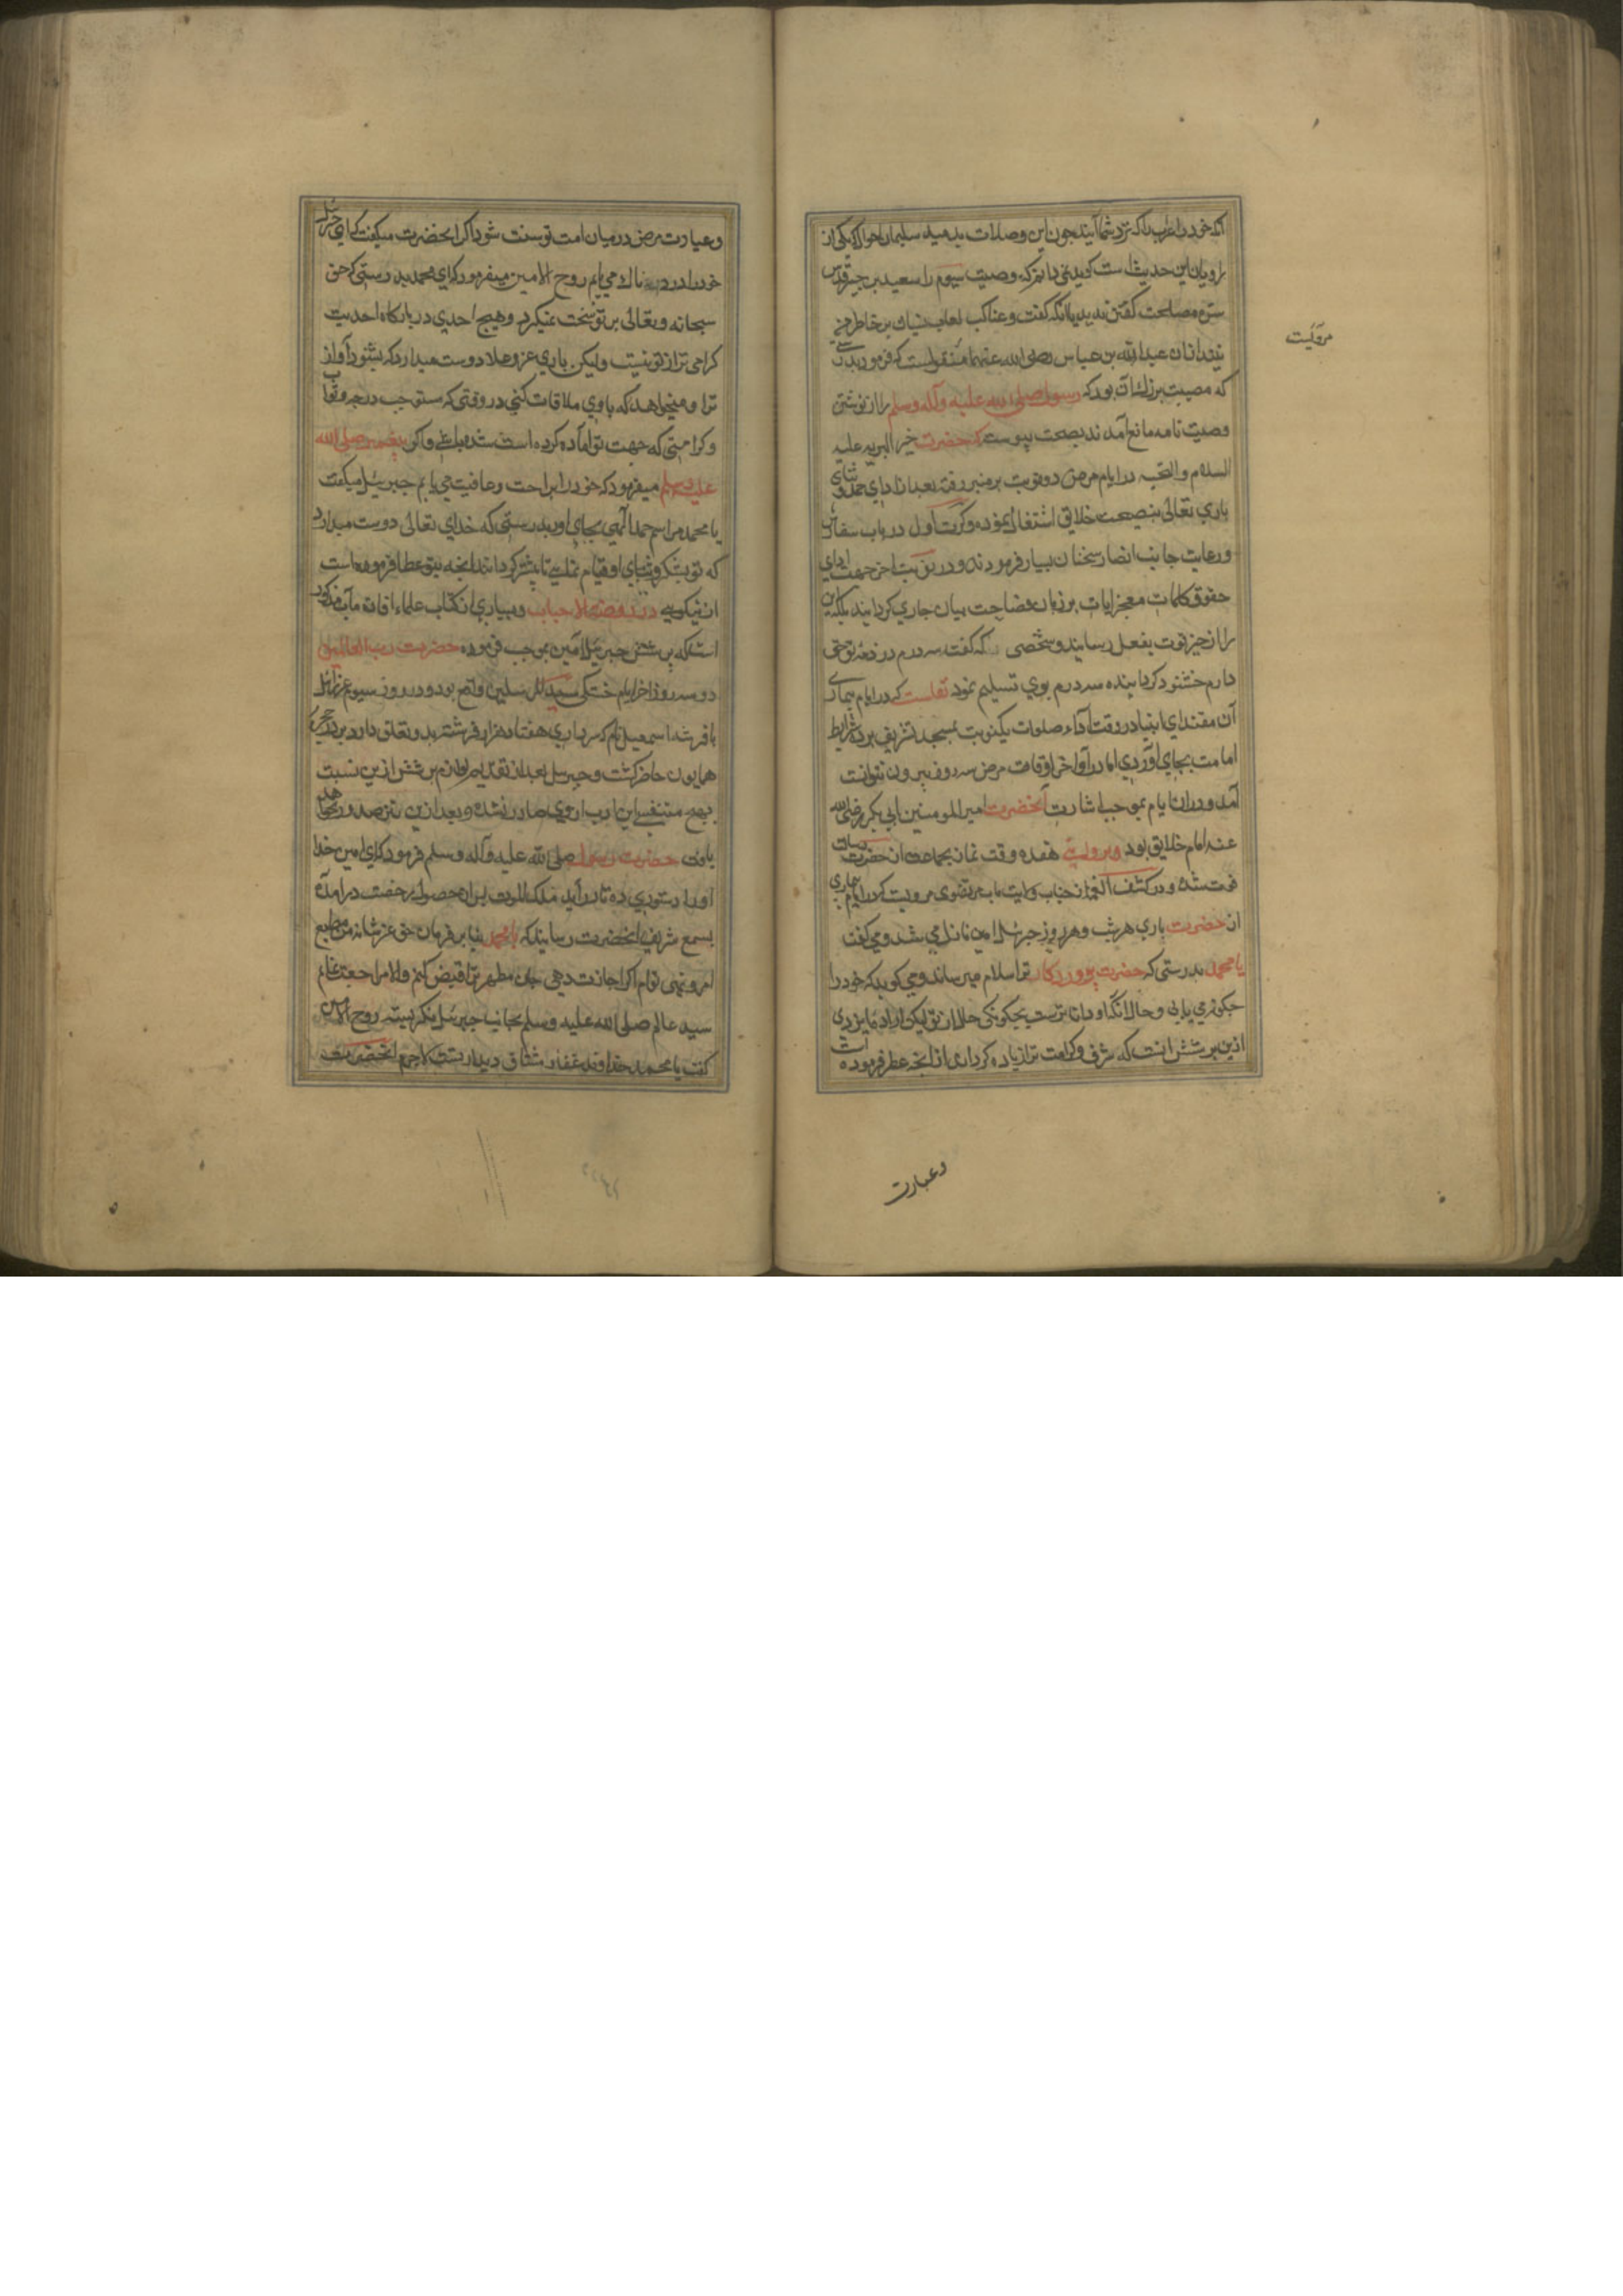 آنکه خود را اعراب را که نزد شما آیند چون این وصلات بدهید سلیمان احول که یکی از
راویان این حدیث است کوید نمی دانم که وصیت سیوم را سعید بن جبیر قدس
سره مصلحت کفتن ندید یا آنکه کفت و عناکب لعاب نسیان بر خاطر من
تنید از ان عبدالله بن عباس رضی الله عنهما منقولست که فرمود بدرستی
که مصیبت بزرک آن بود که رسول صلی الله علیه وآله وسلم را از نوشتن
وصیت نامه مانع آمدند بصحت پیوسته که حضرت خیر البریه علیه
السلام والتحیه در ایام مرض دو نوبت بر منبر رفته بعد از ادای حمد و ثنای
باری تعالی بنصیحت خلایق اشتغال نموده وکرت اول در باب سفارش
ورعایت جانب انصار سخنان بسیار فرمودند ودر نوبت اخر جهت ادای
حقوق کلمات معجز ایات بر زبان فصاحت بیان جاری کردانیدند بلکه این
را از حیز قوت بفعل رسانیدند وشخصی که کفت سه درم در ذمه تو حق
دارم خشنود کردانیده سه درم بوی تسلیم نمود نقلست که در ایام بیماری
آن مقتدای انبیا در وقت آداء صلوات یکنوبت بمسجد تشریف برده شرایط
امامت بجای آوردی اما در آواخر اوقات مرض سه روز بیرون نتوانست
آمد ودران ایام بموجب اشارت آنحضرت امیر المومنین ابی بکر رضی الله
عنه امام خلایق بود وبروایتی هفده وقت نماز بجماعت از حضرت رسالت
فوت شده ودر کشف الغمه از جناب ولایت ماب مرتضوی مرویست که در ایام بیماری
ان حضرت باری هر شب وهر روز جبرئیل امین نازل می شد ومی کفت
یا محمد بدرستی که حضرت پروردکار ترا سلام میرساند ومی کوید که خود را
چکونه می یابی وحال آنکه او داناترست بچکونکی حال از تو لیکن اراده ایزدی
ازین پرسش آنست که شرف وکرامت ترا زیاده کرداند از آنچه عطا فرموده است
مرویست
وعیادت
وعیادت مرض در میان امت تو سنت شود اکر آنحضرت میکفت که ای جبرئیل
خود را دردناک می یابم روح الامین میفرمود که ای محمد بدرستی که حق
سبحانه وتعالی بر تو سخت نمیکرد وهیچ احدی در بارکاه احدیت
کرامی تر از تو نیست ولیکن باری عز وعلا دوست میدارد که بشنود آواز
ترا ومیخواهد که با وی ملاقات کنی در وقتی که مستوجب درجه وثواب
وکرامتی که جهت تو اماده کرده است شده باشی واکر پیغمبر صلی الله
علیه وسلم میفرمود که خود را براحت وعافیت می یابم جبرئیل میکفت
یا محمد مراسم حمد الهی بجای اور بدرستی که خدای تعالی دوست میدارد
که تو بشکر وثنای او قیام نمایی تا بیشتر کرداند آنچه بتو عطا فرموده است
از نیکویی در روضة الاحباب وبسیاری از کتاب علماء افادت مآب مذکور
است که پرسش جبرئیل امین بموجب فرموده حضرت رب العالمین
دو سه روز اخر ایام خستکی سید المرسلین واقع بود ودر روز سیوم عزرائیل
با فرشته اسمعیل نام که سرداری هفتاد هزار فرشته بدو تعلق دارد بر در حجره
همایون حاضر کشت وجبرئیل بعد از تقدیم لوازم پرسش ازین نسبت
بهیچ متنفسی این ادب ازوی صادر نشده وبعد ازین نیز صدور نخواهد
یافت حضرت رسول صلی الله علیه وآله وسلم فرمود که ای امین خدا
اورا دستوری ده تا در آید ملک الموت بعد از حصول رخصت در آمده
بسمع شریف آنحضرت رسانید که یا محمد بنا بر فرمان حق عز شانه من مطیع
امر ونهی توام اکر اجازت دهی جان مطهر ترا قبض کنم والا مراجعت نمایم
سید عالم صلی الله علیه وسلم بجانب جبرئیل نکریسته روح الامین
کفت یا محمد خداوند غفار مشتاق دیدار تست لاجرم آنحضرت